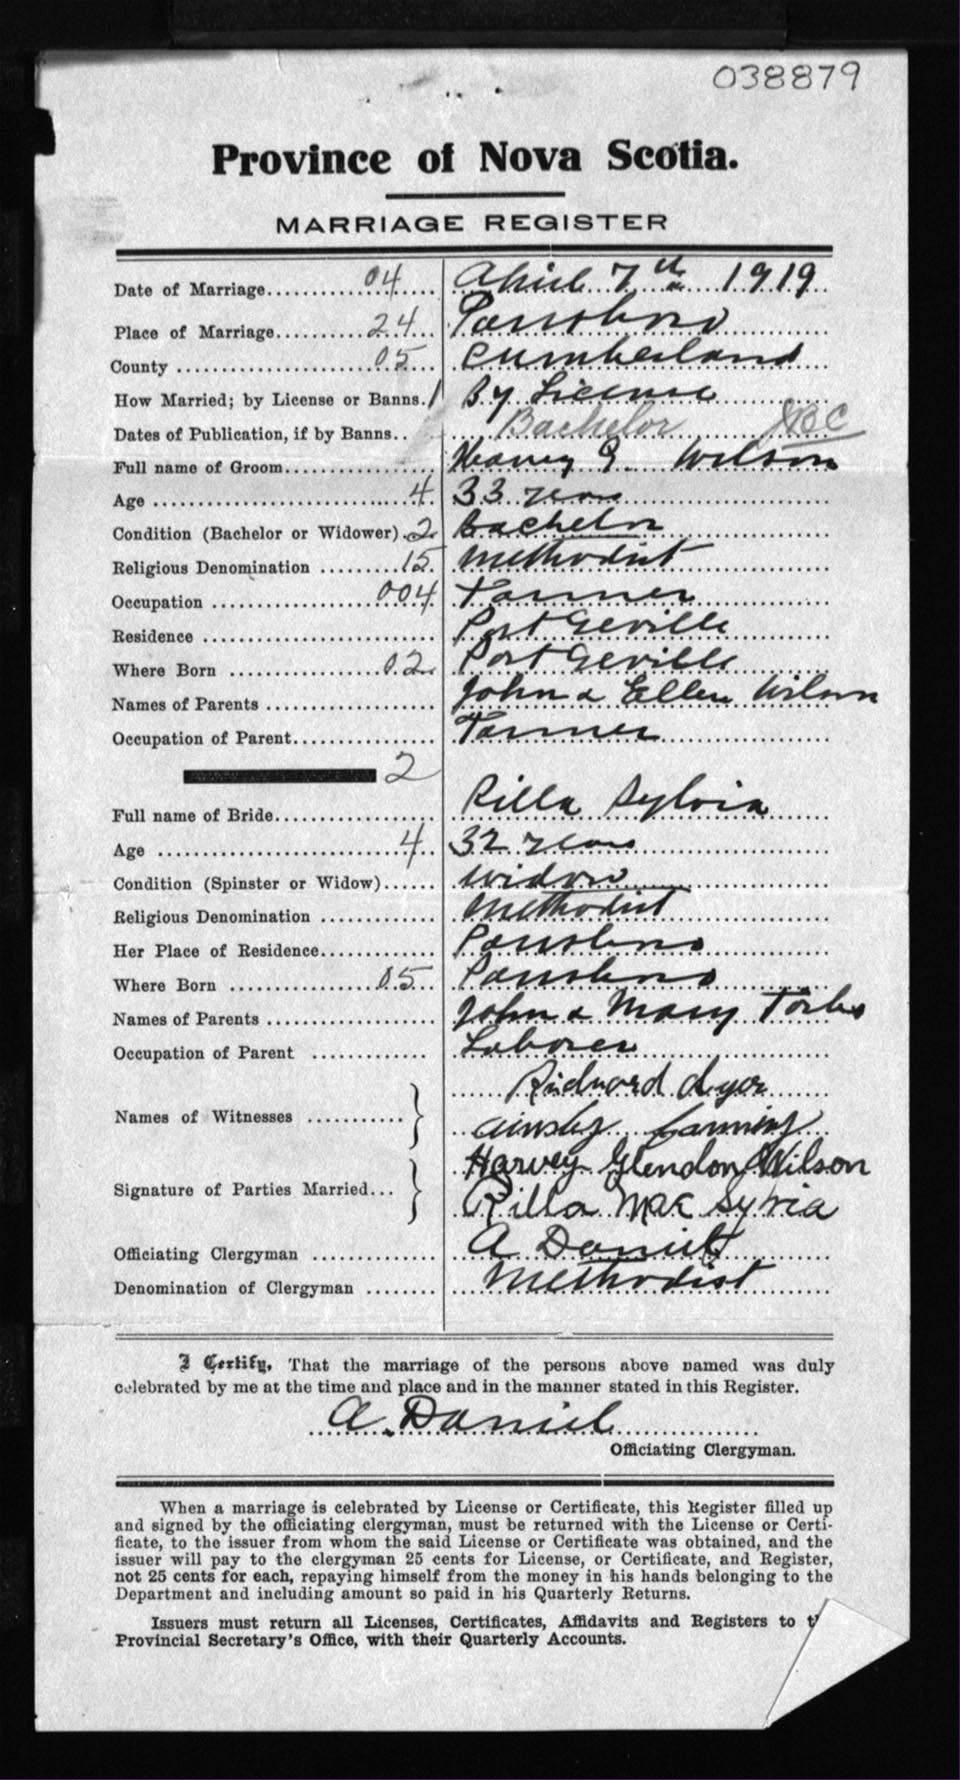 038879
Province of Nova Scotia.
MARRIAGE REGISTER
Date of Marriage 04 April 7th 1919
Place of Marriage 24 Parrsboro
County 05 Cumberland
How Married; by License or Banns. 1 By License
Dates of Publication, if by Banns.. Bachelor
Full name of Groom Harvey G. Wilson
Age 4 33 years
Condition (Bachelor or Widower) 2 Bachelor
Religious Denomination 15 Methodist
Occupation 004 Farmer
Residence Port Greville
Where Born 02 Port Greville
Names of Parents John & Ellen Wilson
Occupation of Parent Farmer
2
Full name of Bride Rilla Sylvia
Age 4 32 years
Condition (Spinster or Widow) Widow
Religious Denomination Methodist
Her Place of Residence Parrsboro
Where Born 05 Parrsboro
Names of Parents John & Mary
Occupation of Parent Laborer
Richard Dyer
Names of Witnesses
Ainsley Canning
Harvey Glendon Wilson
Signature of Parties Married...
Rilla Mae Sylvia
Officiating Clergyman A Daniel
Denomination of Clergyman Methodist
I Certify, That the marriage of the persons above named was duly
celebrated by me at the time and place and in the manner stated in this Register.
A. Daniel
Officiating Clergyman.
When a marriage is celebrated by License or Certificate, this Register filled up
and signed by the officiating clergyman, must be returned with the License or Certi-
ficate, to the issuer from whom the said License or Certificate was obtained, and the
issuer will pay to the clergyman 25 cents for License, or Certificate, and Register,
not 25 cents for each, repaying himself from the money in his hands belonging to the
Department and including amount so paid in his Quarterly Returns.
Issuers must return all Licenses, Certificates, Affidavits and Registers to
Provincial Secretary's Office, with their Quarterly Accounts.